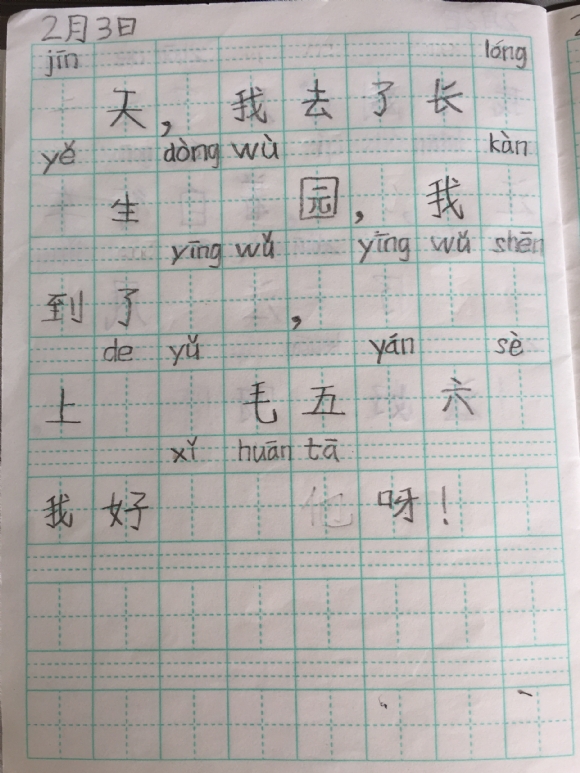 2月3日
jīn lóng
天，我去了长
yě dòng wù kàn
生园，我
yīng wǔ yīng wǔ shēn
到了，
de yǔ yán sè
上毛五六
xǐ huān tā
我好他呀！